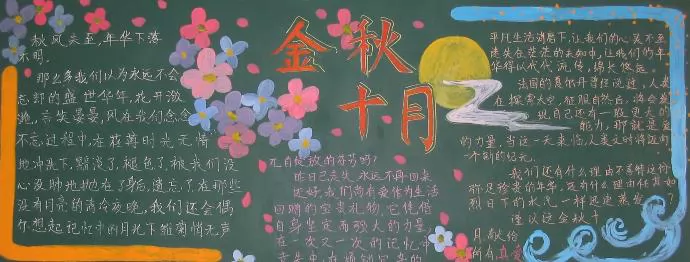 金秋
十月
秋风未至,年华下落
不明。
那么多我们以为永远不会
忘却的盛世华年,花开潋
滟,言笑晏晏,风在我们念念
不忘过程中,在荏苒时光无情
地冲洗下,黯淡了,褪色了,被我们没
心没肺地抛在了身后,遗忘了,在那些
没有月亮的清冷夜晚,我们还会偶
尔想起记忆中的月光下雏菊悄无声
自绽放的
昨日已失,永远不再回来
还好,我们尚有爱作为生活
回赠的宝贵礼物,它使借
自身坚定而强大的力量,
在一次又一次的记忆中
平凡生活背后,让我们的心灵不至
迷失在茫茫的未知中,让我们的年
华得以代代流传,绵长悠远。
法国的夏尔丹曾经说过,人类
在探索太空,征服自然后,将会发
现自己还有一股更大的
能力,那就是爱
的力量,当这一天来临,人类文明将迈向
一个新的纪元。
我们还有什么理由不善待这份
弥足珍贵的年华,还有什么理由任其如
烈日下的水汽一样迅速蒸发?
谨以这金秋十
月,献给
所有真爱